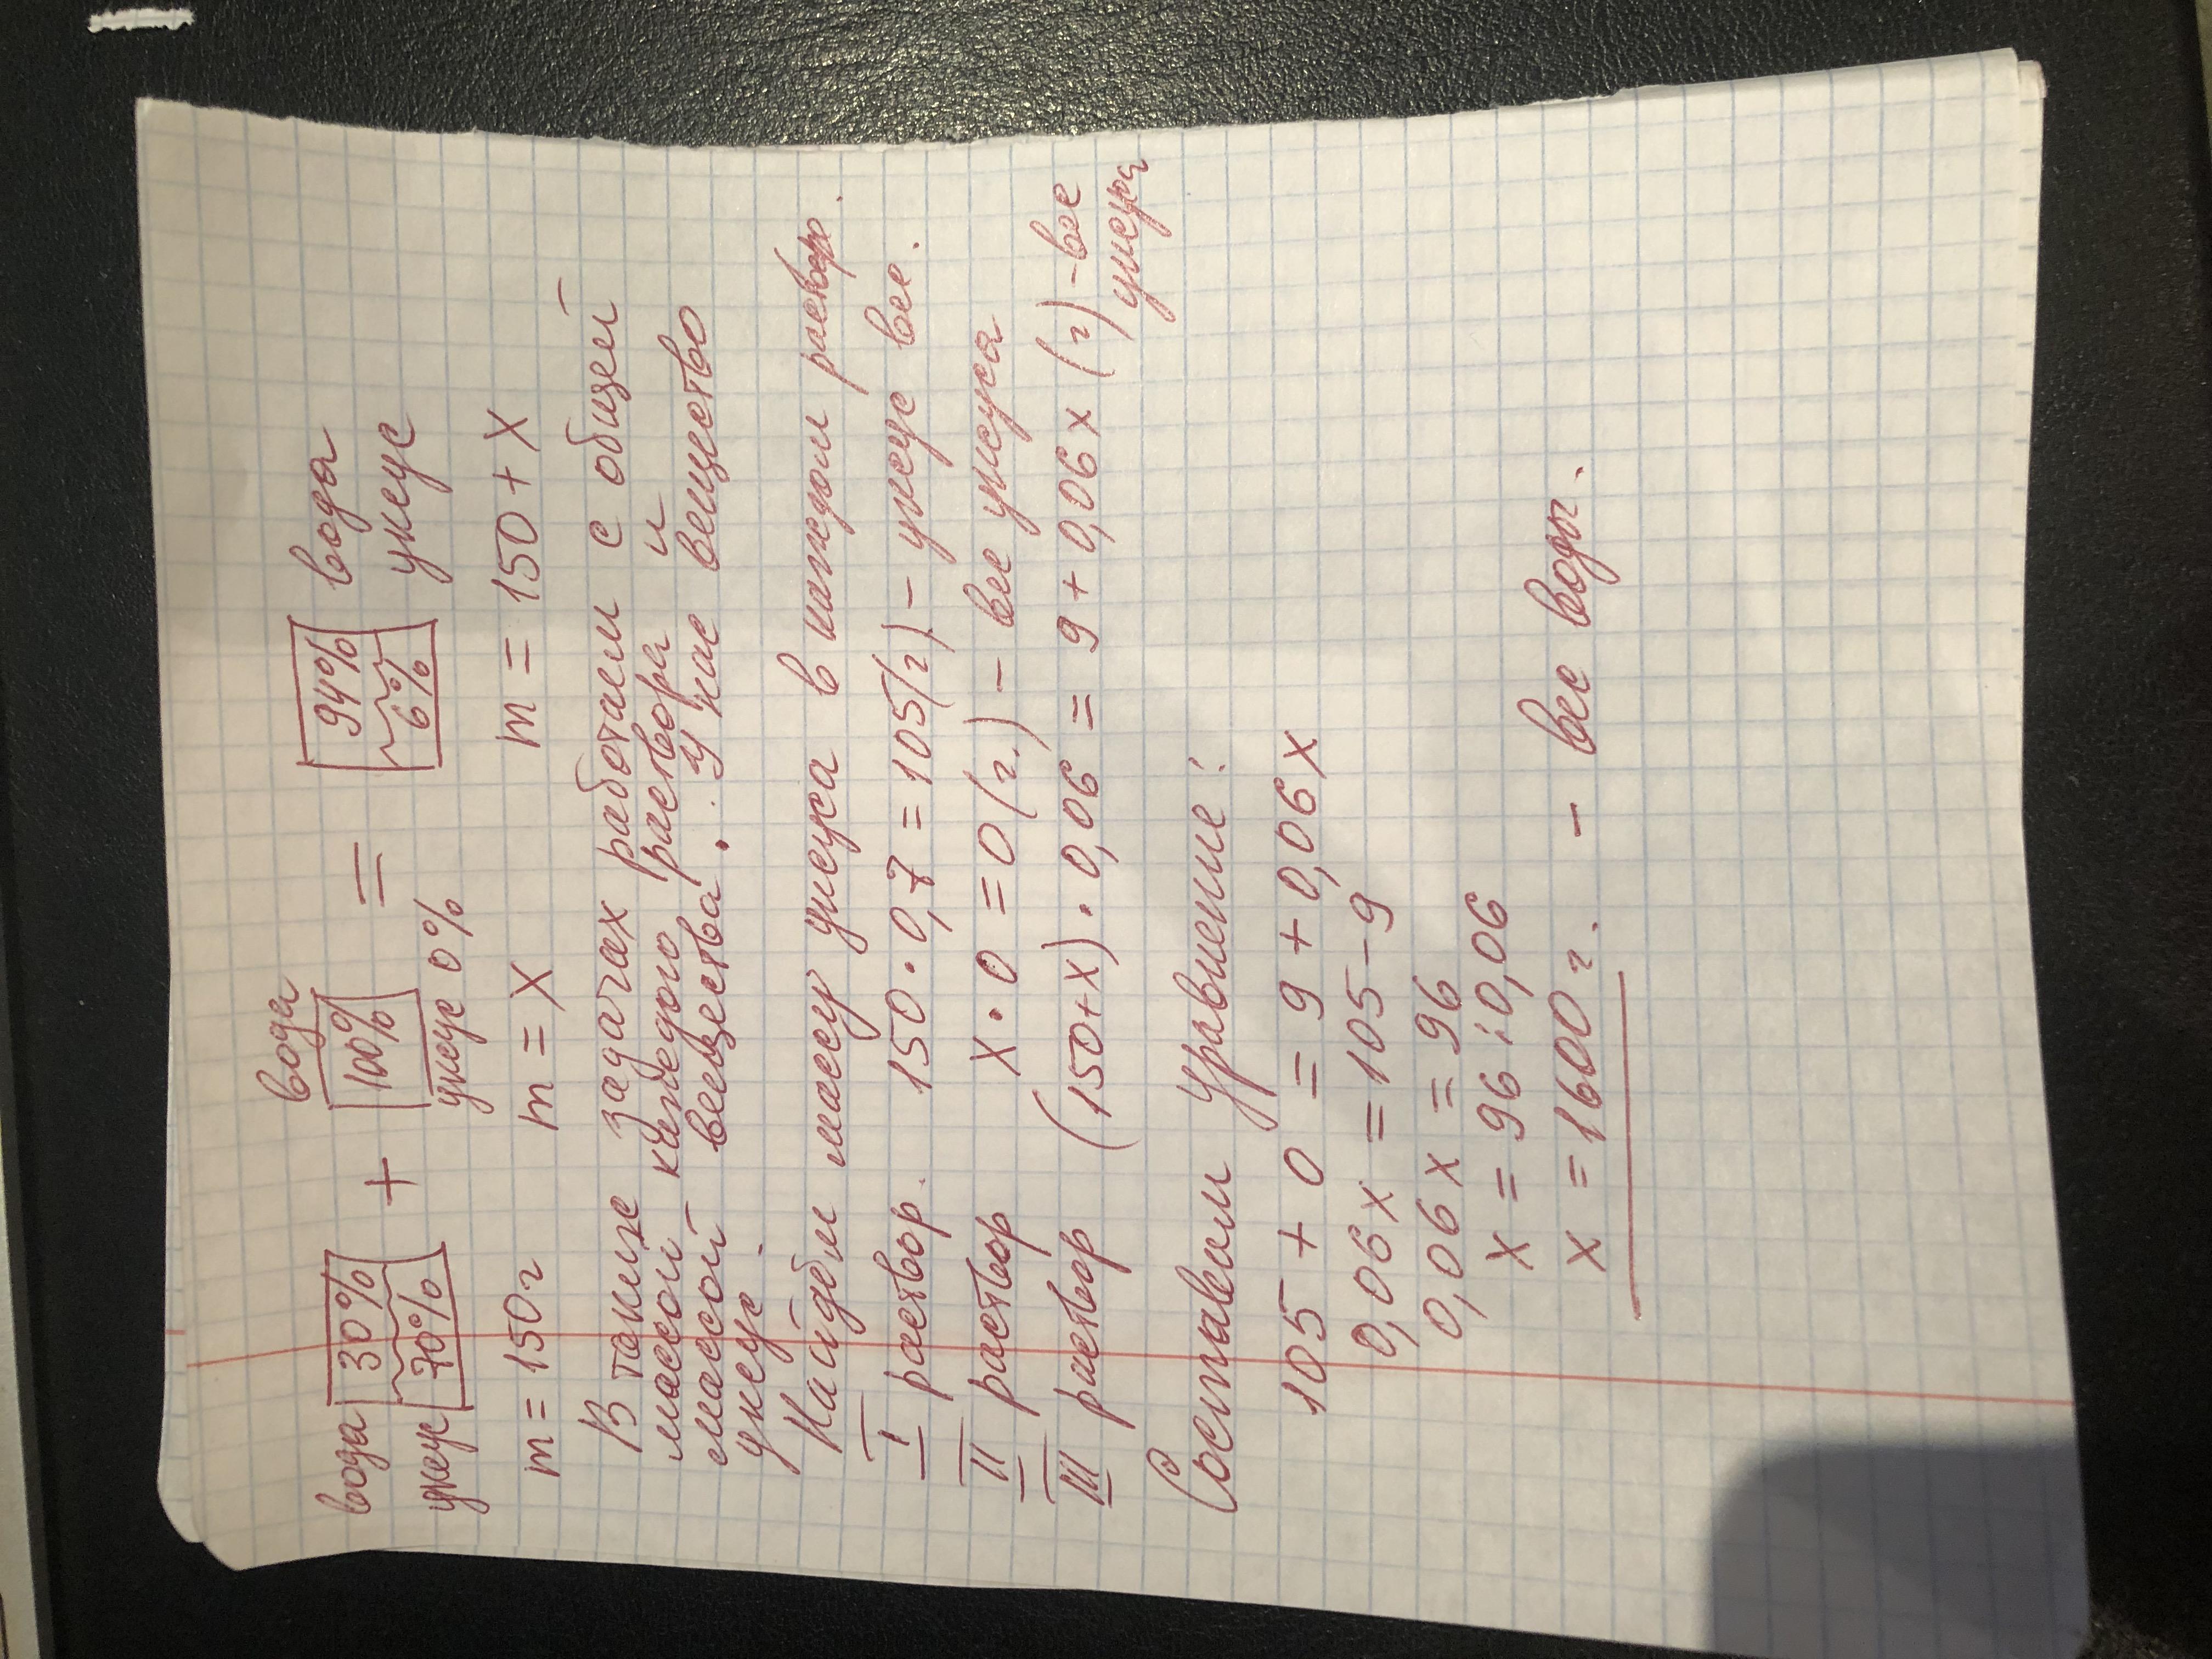 вода 30% + вода 100% = 94% вода
уксус 70% уксус 0% 6% уксус
m = 150 г m = x m = 150 + x
В таких задачах работаем с общей
массой каждого раствора и
массой вещества. У нас вещество
уксус.
Найдём массу уксуса в каждом раствор.
I раствор. 150 · 0,7 = 105 (г) – уксус вес.
II раствор x · 0 = 0 (г.) – вес уксуса
III раствор (150+x) · 0,06 = 9 + 0,06x (г) – вес
уксуса
Составим уравнение:
105 + 0 = 9 + 0,06x
0,06x = 105 – 9
0,06x = 96
x = 96 : 0,06
x = 1600 г. – вес воды.